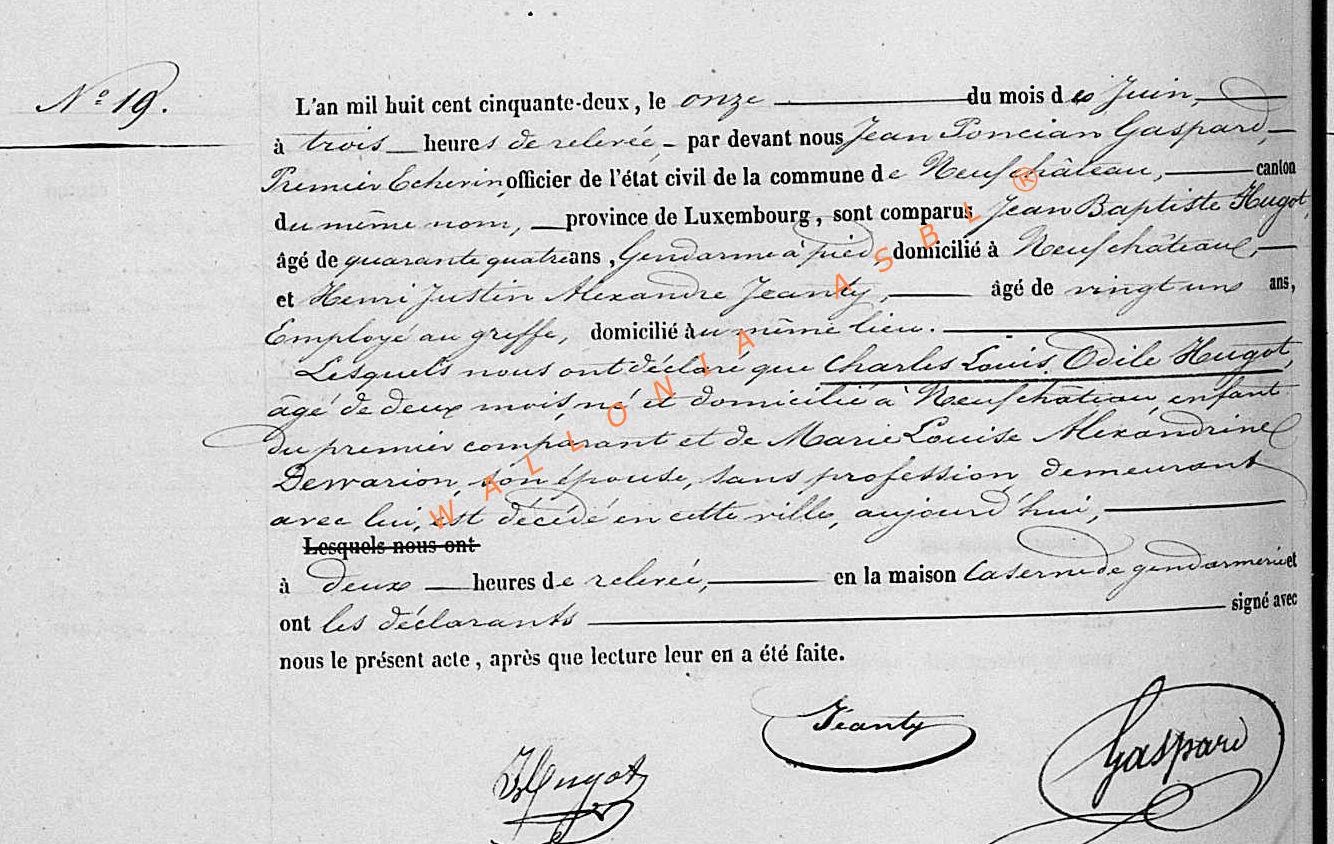 N° 19.
L'an mil huit cent cinquante-deux, le onze du mois de Juin,
à trois heures de relevée, par devant nous Jean Poncian Gaspard,
Premier Echevin, officier de l'état civil de la commune de Neufchâteau, canton
du même nom, province de Luxembourg, sont comparus Jean Baptiste Hugot,
âgé de quarante quatre ans, Gendarme à pied, domicilié à Neufchâteau,
et Henri Justin Alexandre Jeanty, âgé de vingt un ans,
Employé au greffe, domicilié au même lieu.
Lesquels nous ont déclaré que Charles Louis Odile Hugot,
âgé de deux mois, né et domicilié à Neufchâteau, enfant
du premier comparant et de Marie Louise Alexandrine
son épouse, sans profession, demeurant
avec lui, est décédé en cette ville, aujourd'hui,
Lesquels nous ont
à deux heures de relevée, en la maison Caserne de gendarmerie et
ont les déclarants signé avec
nous le présent acte, après que lecture leur en a été faite.
Jeanty
Hugot
Gaspard
WALLONIA ASBL ®